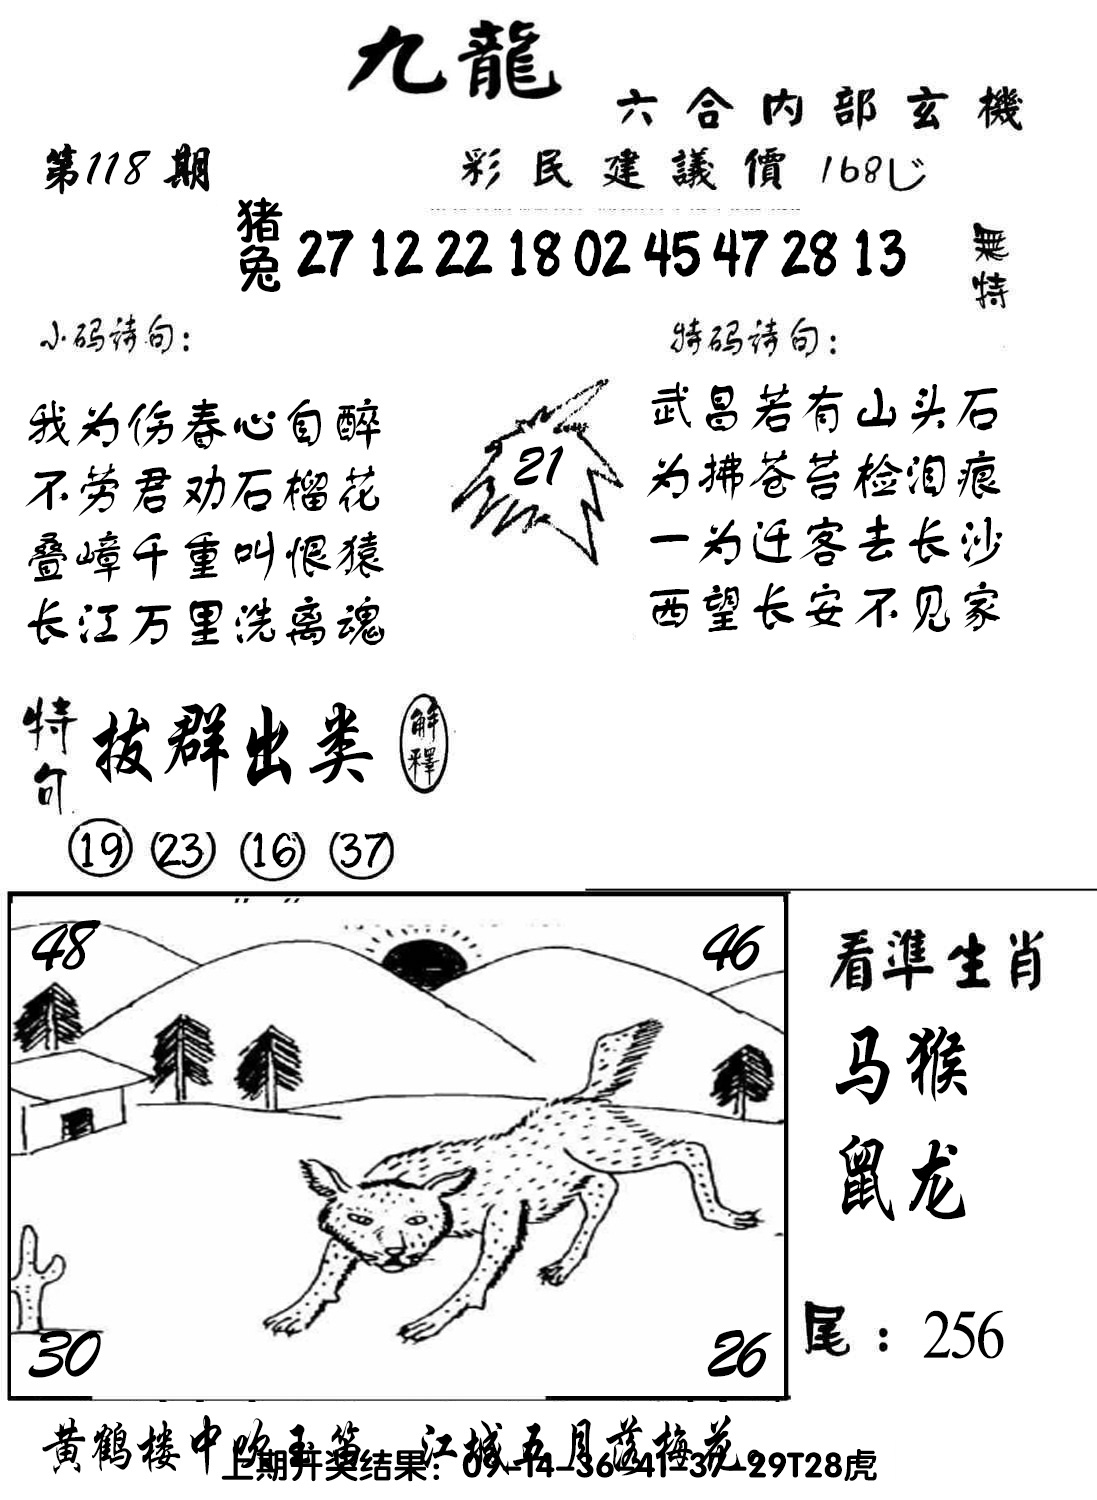 九龍
六合内部玄機
第118期
彩民建議價168
猪兔 27 12 22 18 02 45 47 28 13
無特
小码诗句:
特码诗句:
我为伤春心自醉
不劳君劝石榴花
叠嶂千重叫恨猿
长江万里洗离魂
21
武昌若有山头石
为拂苍苔检泪痕
一为迁客去长沙
西望长安不见家
特句 拔群出类 解釋
19 23 16 37
48 46
30 26
看準生肖
马猴
鼠龙
尾:256
黄鹤楼中吹玉笛 江城五月落梅花。
上期开奖结果:09-14-36-41-37-29T28虎